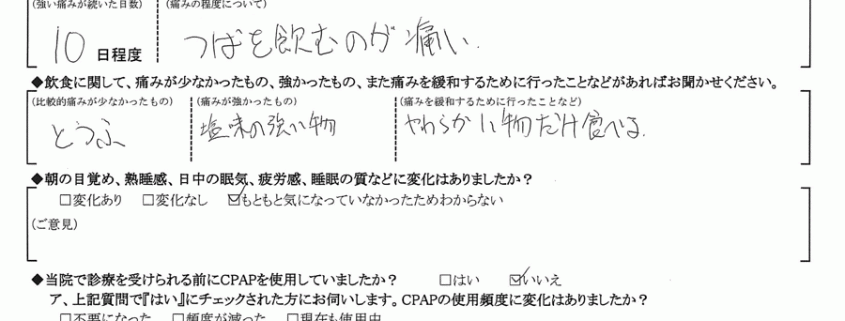 (強い痛みが続いた日数) (痛みの程度について)
10 日程度 つばを飲むのが痛い.
◆飲食に関して、痛みが少なかったもの、強かったもの、また痛みを緩和するために行ったことなどがあればお聞かせください。
(比較的痛みが少なかったもの) (痛みが強かったもの) (痛みを緩和するために行ったことなど)
とうふ 塩味の強い物 やわらかい物だけ食べる.
◆朝の目覚め、熟睡感、日中の眠気、疲労感、睡眠の質などに変化はありましたか？
□変化あり □変化なし ☑もともと気になっていなかったためわからない
(ご意見)
◆当院で診療を受けられる前にCPAPを使用していましたか？ □はい ☑いいえ
ア、上記質問で『はい』にチェックされた方にお伺いします。CPAPの使用頻度に変化はありましたか？
□不要になった □頻度が減った □現在も使用中